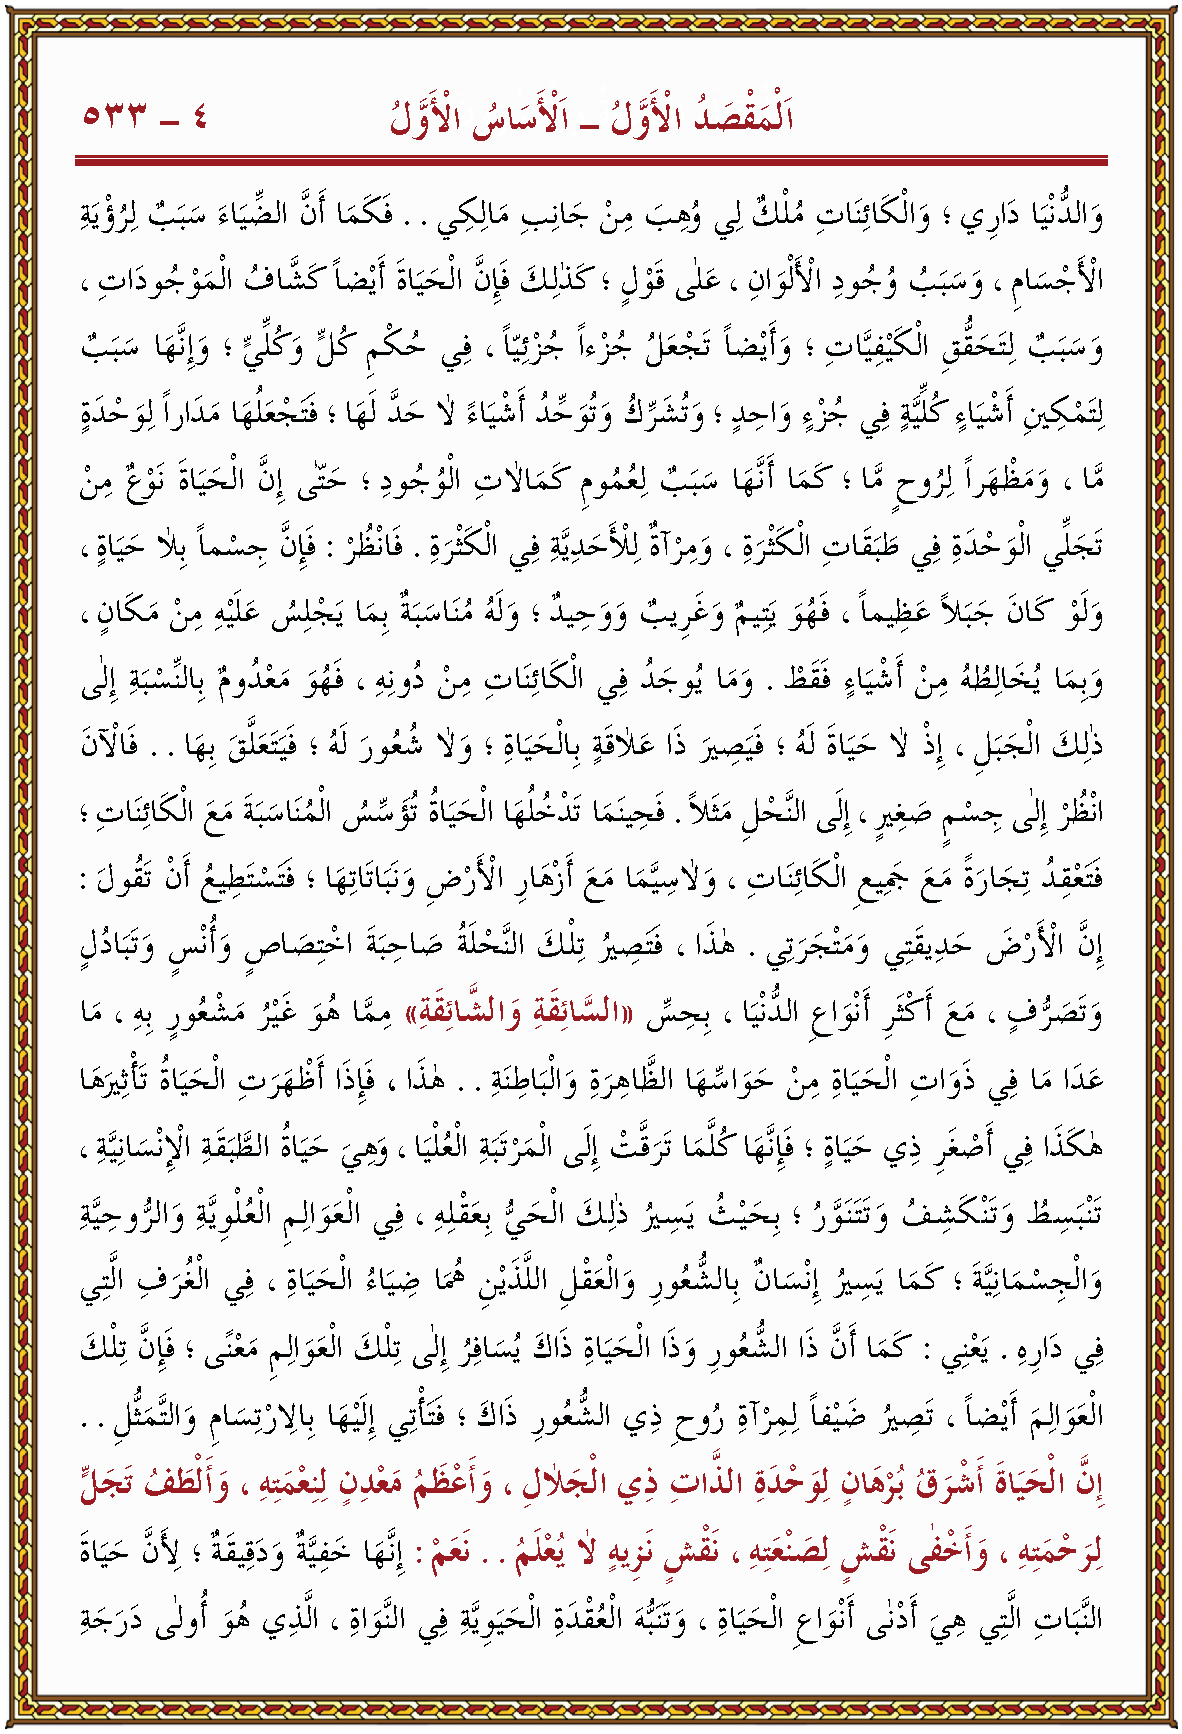 اَلْمَقْصَدُ الْأَوَّلُ ـ اَلْأَسَاسُ الْأَوَّلُ ٤ ـ ٥٣٣
وَالدُّنْيَا دَارِي ؛ وَالْكَائِنَاتِ مُلْكٌ لِي وُهِبَ مِنْ جَانِبِ مَالِكِي . . فَكَمَا أَنَّ الضِّيَاءَ سَبَبٌ لِرُؤْيَةِ
الْأَجْسَامِ ، وَسَبَبُ وُجُودِ الْأَلْوَانِ ، عَلٰى قَوْلٍ ؛ كَذٰلِكَ فَإِنَّ الْحَيَاةَ أَيْضاً كَشَّافُ الْمَوْجُودَاتِ ،
وَسَبَبٌ لِتَحَقُّقِ الْكَيْفِيَّاتِ ؛ وَأَيْضاً تَجْعَلُ جُزْءاً جُزْئِيّاً ، فِي حُكْمِ كُلٍّ وَكُلِّيٍّ ؛ وَإِنَّهَا سَبَبٌ
لِتَمْكِينِ أَشْيَاءٍ كُلِّيَّةٍ فِي جُزْءٍ وَاحِدٍ ؛ وَتُشَرِّكُ وَتُوَحِّدُ أَشْيَاءً لاٰ حَدَّ لَهَا ؛ فَتَجْعَلُهَا مَدَاراً لِوَحْدَةٍ
مَّا ، وَمَظْهَراً لِرُوحٍ مَّا ؛ كَمَا أَنَّهَا سَبَبٌ لِعُمُومِ كَمَالاٰتِ الْوُجُودِ ؛ حَتّٰى إِنَّ الْحَيَاةَ نَوْعٌ مِنْ
تَجَلِّي الْوَحْدَةِ فِي طَبَقَاتِ الْكَثْرَةِ ، وَمِرْآةٌ لِلْأَحَدِيَّةِ فِي الْكَثْرَةِ . فَانْظُرْ : فَإِنَّ جِسْماً بِلاٰ حَيَاةٍ ،
وَلَوْ كَانَ جَبَلاً عَظِيماً ، فَهُوَ يَتِيمٌ وَغَرِيبٌ وَوَحِيدٌ ؛ وَلَهُ مُنَاسَبَةٌ بِمَا يَجْلِسُ عَلَيْهِ مِنْ مَكَانٍ ،
وَبِمَا يُخَالِطُهُ مِنْ أَشْيَاءٍ فَقَطْ . وَمَا يُوجَدُ فِي الْكَائِنَاتِ مِنْ دُونِهِ ، فَهُوَ مَعْدُومٌ بِالنِّسْبَةِ إِلٰى
ذٰلِكَ الْجَبَلِ ، إِذْ لاٰ حَيَاةَ لَهُ ؛ فَيَصِيرَ ذَا عَلاٰقَةٍ بِالْحَيَاةِ ؛ وَلاٰ شُعُورَ لَهُ ؛ فَيَتَعَلَّقَ بِهَا . . فَالْآنَ
انْظُرْ إِلٰى جِسْمٍ صَغِيرٍ ، إِلَى النَّحْلِ مَثَلاً . فَحِينَمَا تَدْخُلُهَا الْحَيَاةُ تُؤَسِّسُ الْمُنَاسَبَةَ مَعَ الْكَائِنَاتِ ؛
فَتَعْقِدُ تِجَارَةً مَعَ جَمِيعِ الْكَائِنَاتِ ، وَلاٰسِيَّمَا مَعَ أَزْهَارِ الْأَرْضِ وَنَبَاتَاتِهَا ؛ فَتَسْتَطِيعُ أَنْ تَقُولَ :
إِنَّ الْأَرْضَ حَدِيقَتِي وَمَتْجَرَتِي . هٰذَا ، فَتَصِيرُ تِلْكَ النَّحْلَةُ صَاحِبَةَ اخْتِصَاصٍ وَأُنْسٍ وَتَبَادُلٍ
وَتَصَرُّفٍ ، مَعَ أَكْثَرِ أَنْوَاعِ الدُّنْيَا ، بِحِسِّ «السَّائِقَةِ وَالشَّائِقَةِ» مِمَّا هُوَ غَيْرُ مَشْعُورٍ بِهِ ، مَا
عَدَا مَا فِي ذَوَاتِ الْحَيَاةِ مِنْ حَوَاسِّهَا الظَّاهِرَةِ وَالْبَاطِنَةِ . . هٰذَا ، فَإِذَا أَظْهَرَتِ الْحَيَاةُ تَأْثِيرَهَا
هٰكَذَا فِي أَصْغَرِ ذِي حَيَاةٍ ؛ فَإِنَّهَا كُلَّمَا تَرَقَّتْ إِلَى الْمَرْتَبَةِ الْعُلْيَا ، وَهِيَ حَيَاةُ الطَّبَقَةِ الْإِنْسَانِيَّةِ ،
تَنْبَسِطُ وَتَنْكَشِفُ وَتَتَنَوَّرُ ؛ بِحَيْثُ يَسِيرُ ذٰلِكَ الْحَيُّ بِعَقْلِهِ ، فِي الْعَوَالِمِ الْعُلْوِيَّةِ وَالرُّوحِيَّةِ
وَالْجِسْمَانِيَّةَ ؛ كَمَا يَسِيرُ إِنْسَانٌ بِالشُّعُورِ وَالْعَقْلِ اللَّذَيْنِ هُمَا ضِيَاءُ الْحَيَاةِ ، فِي الْغُرَفِ الَّتِي
فِي دَارِهِ . يَعْنِي : كَمَا أَنَّ ذَا الشُّعُورِ وَذَا الْحَيَاةِ ذَاكَ يُسَافِرُ إِلٰى تِلْكَ الْعَوَالِمِ مَعْنًى ؛ فَإِنَّ تِلْكَ
الْعَوَالِمَ أَيْضاً ، تَصِيرُ ضَيْفاً لِمِرْآةِ رُوحِ ذِي الشُّعُورِ ذَاكَ ؛ فَتَأْتِي إِلَيْهَا بِالاِرْتِسَامِ وَالتَّمَثُّلِ . .
إِنَّ الْحَيَاةَ أَشْرَقُ بُرْهَانٍ لِوَحْدَةِ الذَّاتِ ذِي الْجَلاٰلِ ، وَأَعْظَمُ مَعْدِنٍ لِنِعْمَتِهِ ، وَأَلْطَفُ تَجَلٍّ
لِرَحْمَتِهِ ، وَأَخْفٰى نَقْشٍ لِصَنْعَتِهِ ، نَقْشٍ نَزِيهٍ لاٰ يُعْلَمُ . . نَعَمْ : إِنَّهَا خَفِيَّةٌ وَدَقِيقَةٌ ؛ لِأَنَّ حَيَاةَ
النَّبَاتِ الَّتِي هِيَ أَدْنٰى أَنْوَاعِ الْحَيَاةِ ، وَتَنَبُّهَ الْعُقْدَةِ الْحَيَوِيَّةِ فِي النَّوَاةِ ، الَّذِي هُوَ أُولٰى دَرَجَةِ